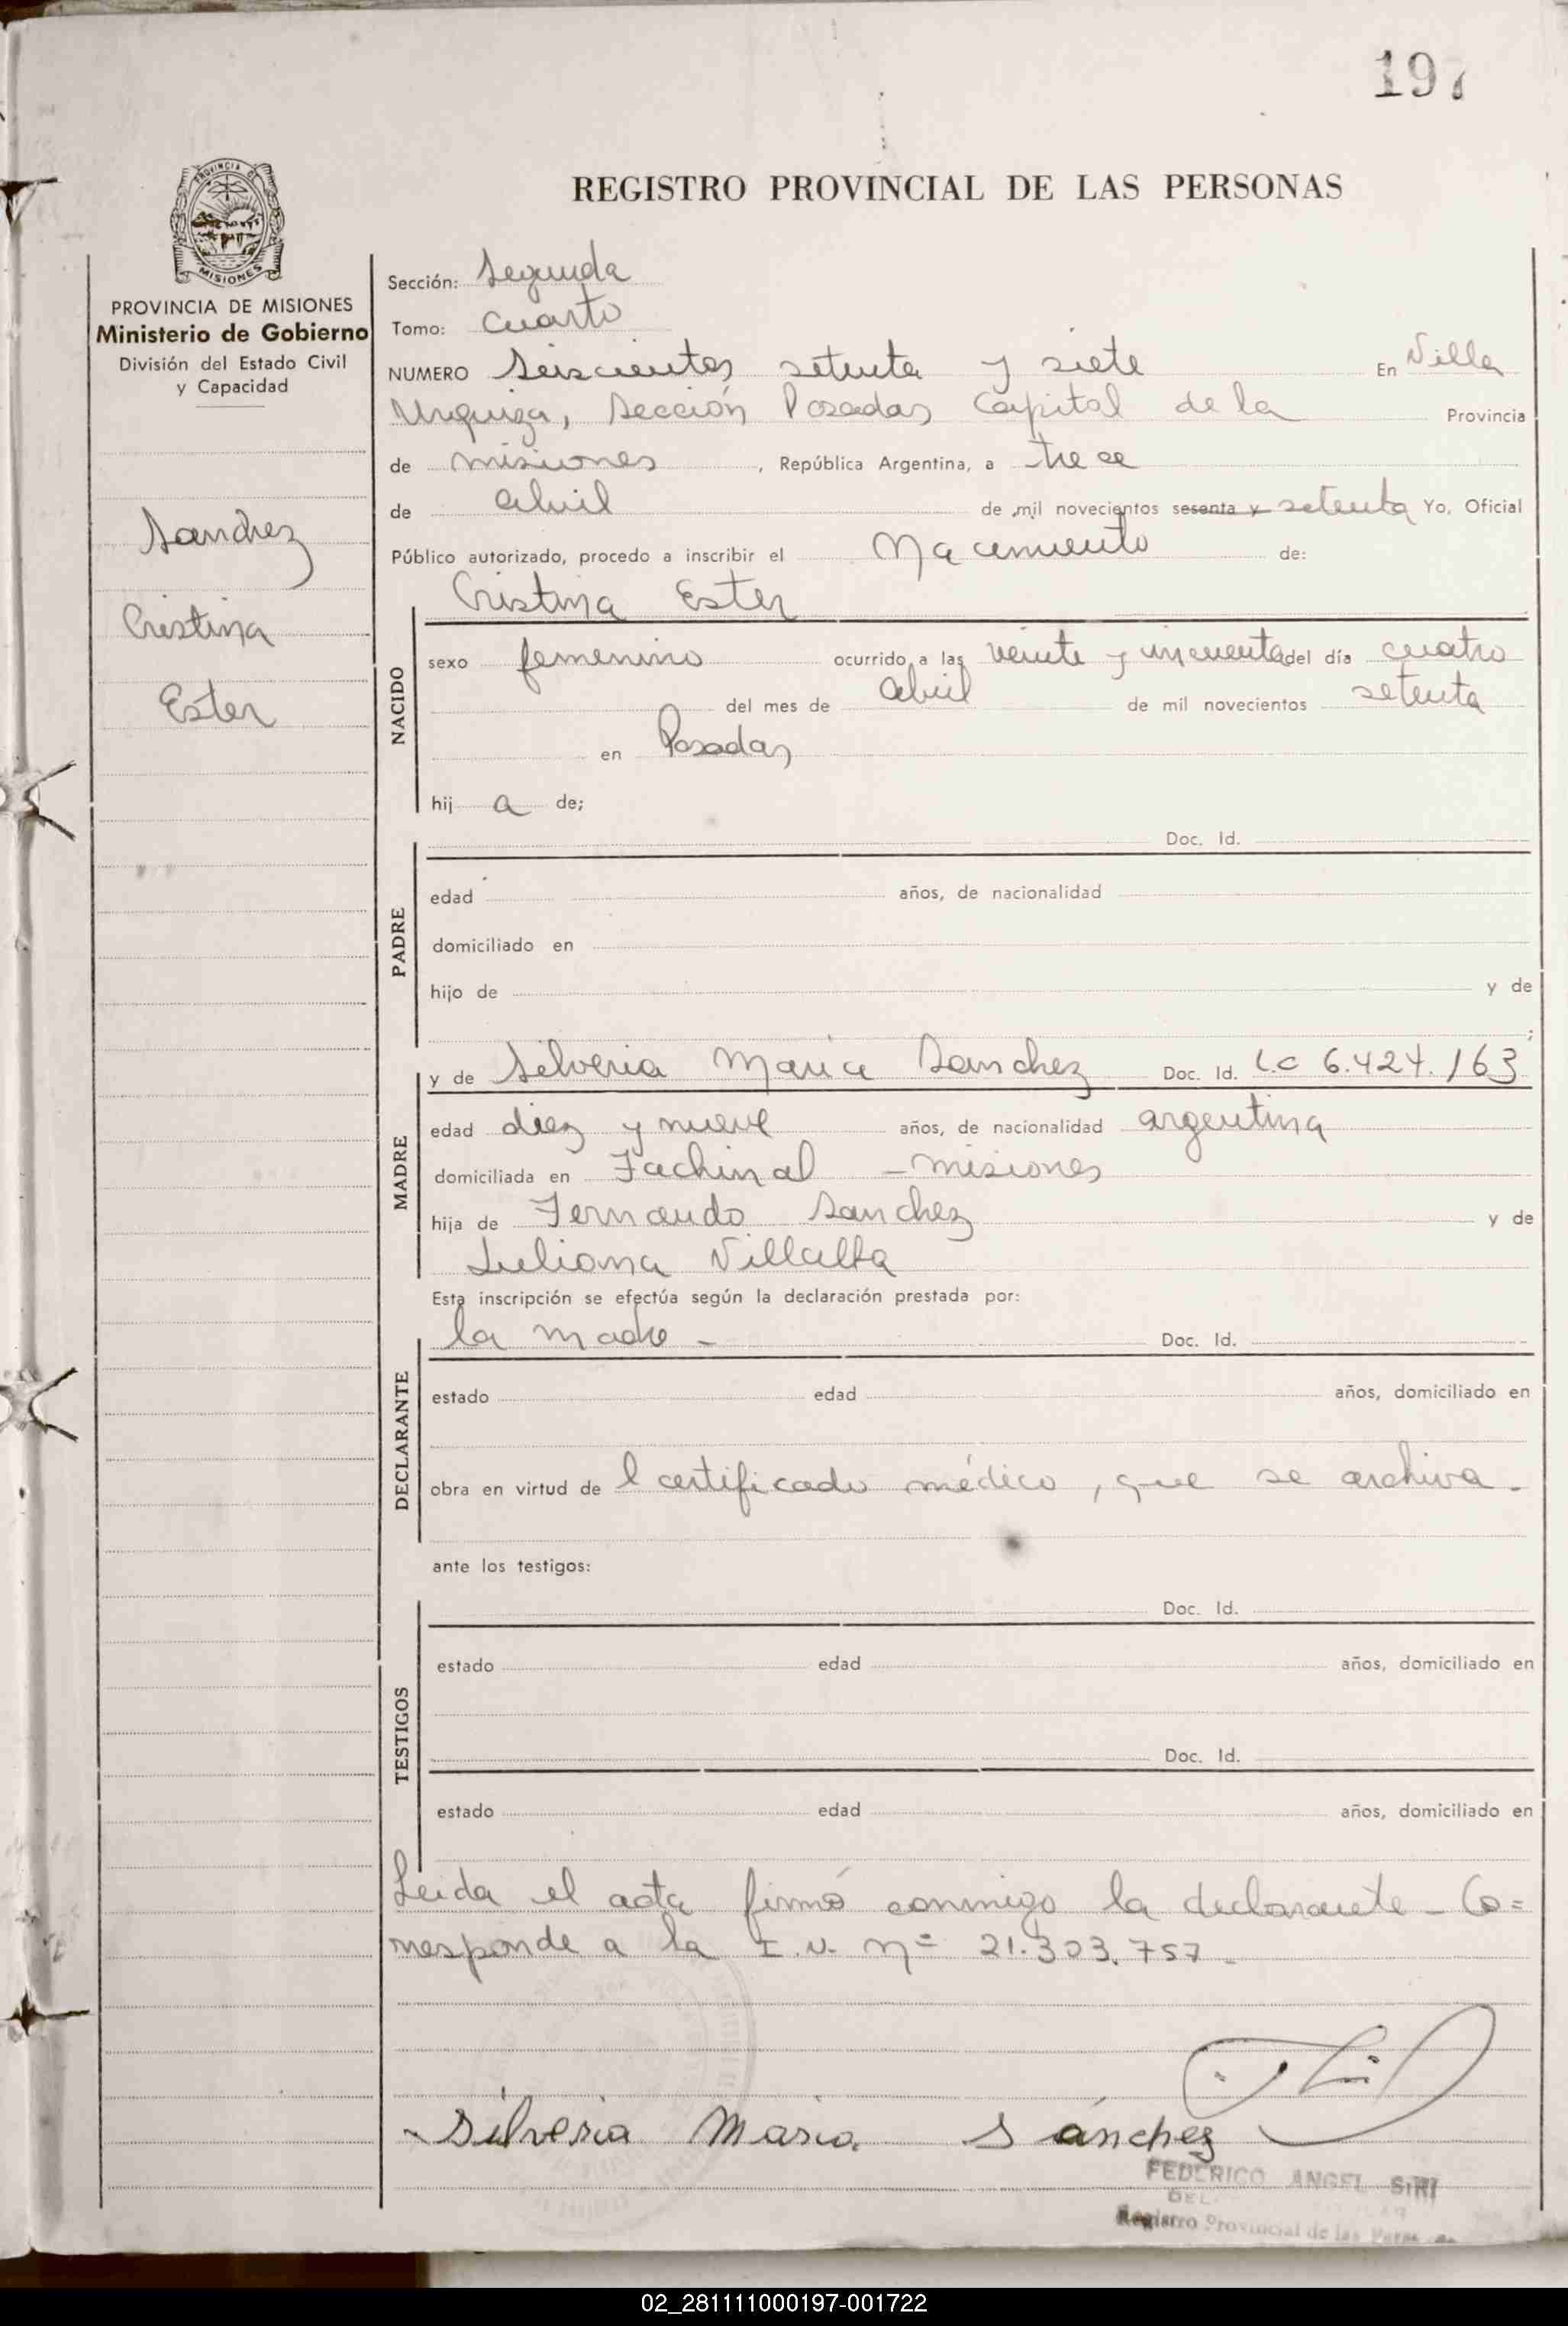 197
REGISTRO PROVINCIAL DE LAS PERSONAS
PROVINCIA DE
MISIONES
PROVINCIA DE MISIONES
Ministerio de Gobierno
División del Estado Civil
y Capacidad
Sanchez
Cristina
Ester
Sección: Segunda
Tomo: Cuarto
NUMERO Seiscientos setenta y siete En Villa
Urquiza, Sección Posadas Capital de la Provincia
de misiones, República Argentina, a trece
de abril de mil novecientos sesenta y setenta Yo, Oficial
Público autorizado, procedo a inscribir el Nacimiento de:
Cristina Ester
NACIDO
sexo femenino ocurrido a las veinte y cincuenta del día cuatro
del mes de abril de mil novecientos setenta
en Posadas
hij a de;
PADRE
Doc. Id.
edad años, de nacionalidad
domiciliado en
hijo de y de
MADRE
y de Silveria Maria Sanchez Doc. Id. L.C 6.424.163
edad diez y nueve años, de nacionalidad argentina
domiciliada en Fachinal - misiones
hija de Fernando Sanchez y de
Juliana Villalba
Esta inscripción se efectúa según la declaración prestada por:
DECLARANTE
la madre - Doc. Id.
estado edad años, domiciliado en
obra en virtud de l certificado médico, que se archiva.
ante los testigos:
TESTIGOS
Doc. Id.
estado edad años, domiciliado en
Doc. Id.
estado edad años, domiciliado en
Leida el acta firmó conmigo la declarante - Co=
rresponde a la I.N. nº 21.303.757 -
Silveria Maria Sánchez
FEDERICO ANGEL SIRI
DEL.
Registro Provincial de las
02_281111000197-001722